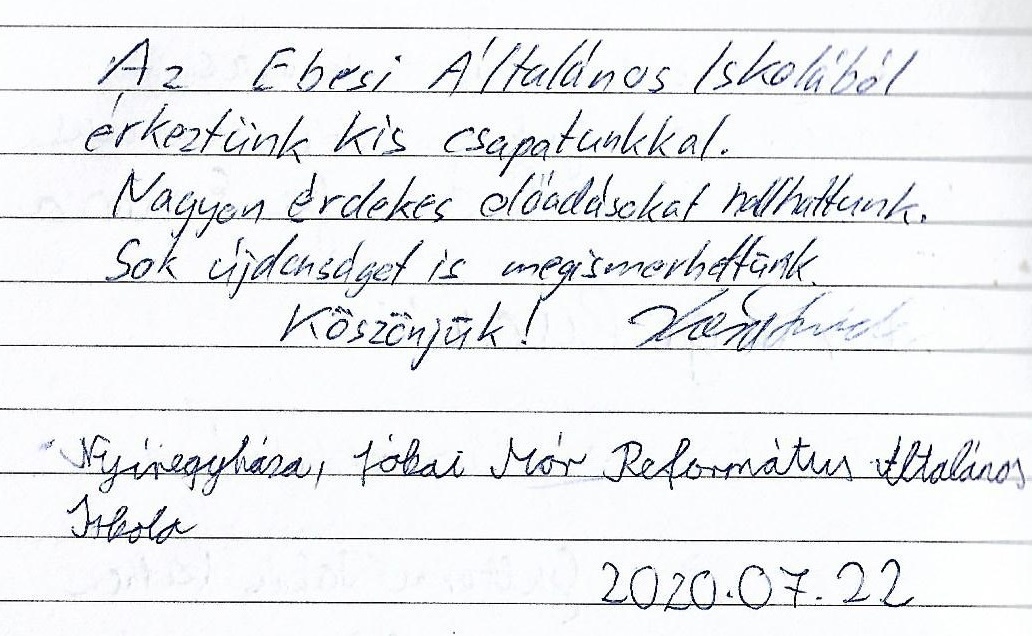 Az Ebesi Általános Iskolából
érkeztünk kis csapatunkkal.
Nagyon érdekes előadásokat hallhattunk.
Sok újdonságot is megismerhettünk.
Köszönjük!
Nyíregyháza, Jókai Mór Református Általános
Iskola
2020.07.22